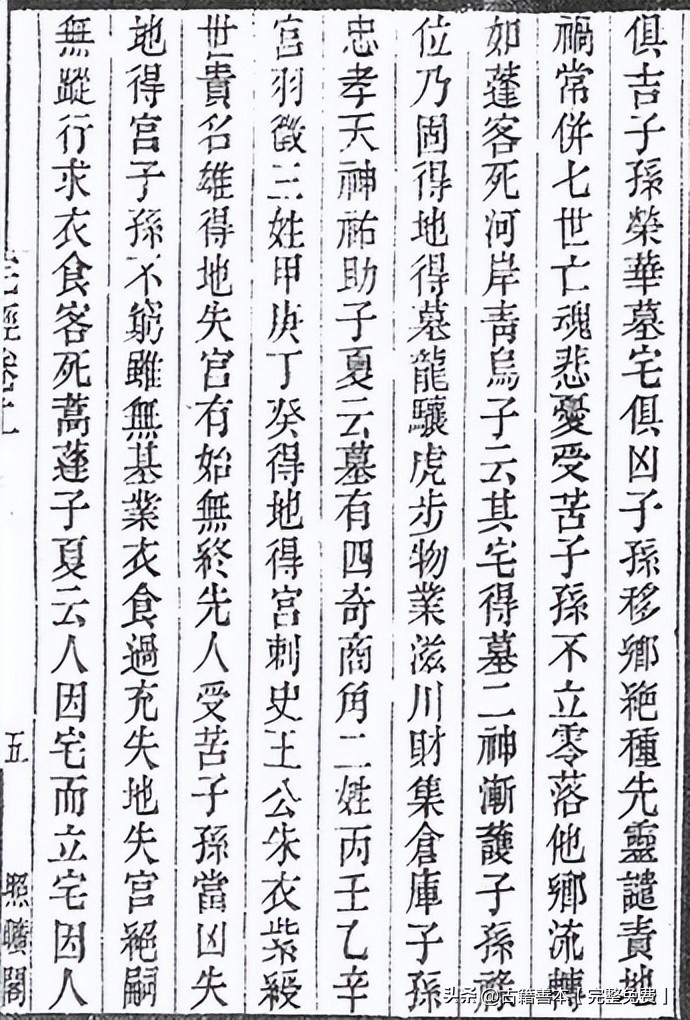 俱吉子孫榮華墓宅俱凶子孫移鄉絶種先靈譴責地
禍常併七世亡魂悲憂受苦子孫不立零落他鄉流轉
如蓬客死河岸靑烏子云其宅得墓二神漸護子孫祿
位乃固得地得墓龍驤虎步物業滋川財集倉庫子孫
忠孝天神祐助子夏云墓有四奇商角二姓丙壬乙辛
宮羽徵三姓甲庚丁癸得地得宮刺史王公朱衣紫綬
世貴名雄得地失宮有始無終先人受苦子孫當凶失
地得宮子孫不窮雖無基業衣食過充失地失宮絕嗣
無蹤行求衣食客死蒿蓬子夏云人因宅而立宅因人
宅經卷上
五
照曠閣
头条 @古籍善本【完整免费】